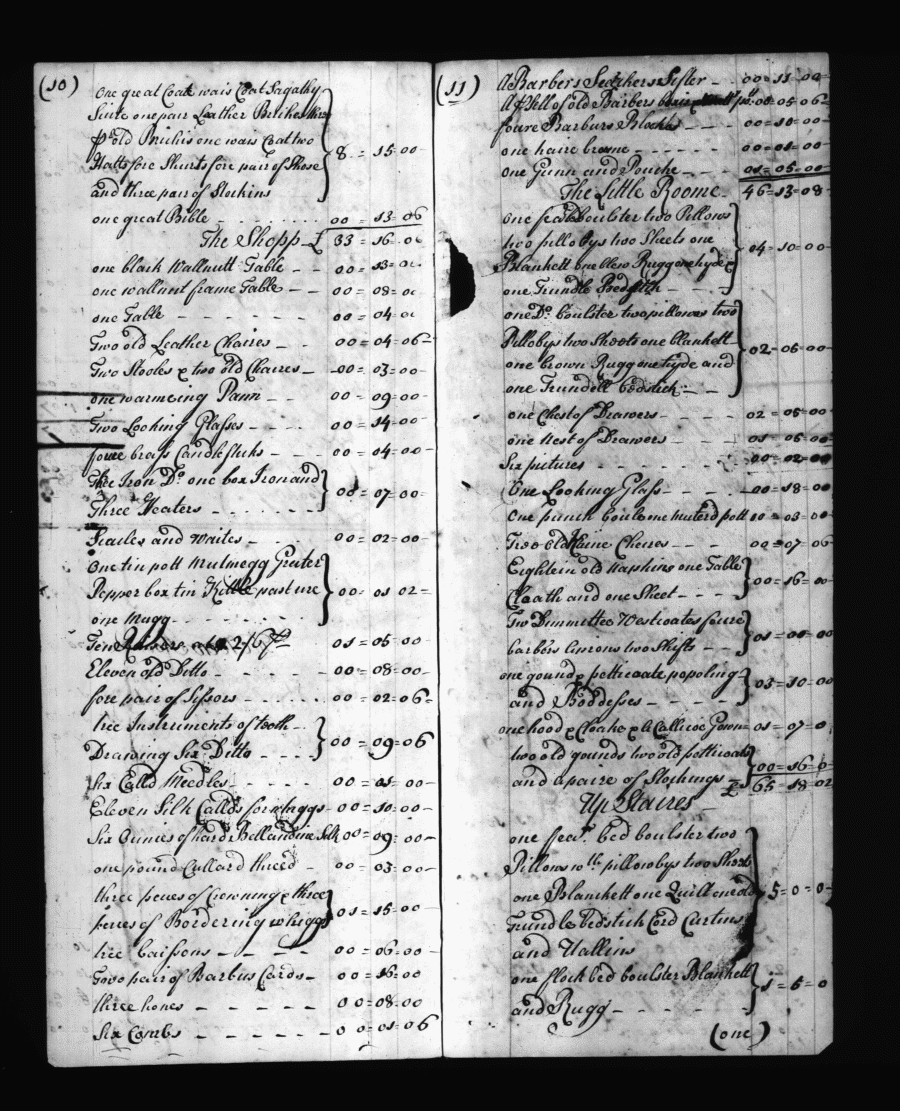 (10)
one great Coat wais Coat Sagathy
Sute one pair Leather Britches
old Brichis one wais Coat two
Hatts fore Shurts fore pair of Shose
and three pair of Stockins
8 = 15=00
one great Bible 00 = 13=06
The Shopp £ 33 = 16=06
one black Wallnutt Table 00 = 13=0
one wallnut frame Table 00 = 08=0
one Table 00 = 04=0
Two old Leather Chaires 00 = 04=06
Two Stooles & two old Chaires 00 = 03=00
one warmeing Pann 00 = 09=00
Two Looking Glasses 00 = 14=00
foure brass Candlesticks 00 = 04=00
Iron Do. one box Iron and
Three Heaters
00 = 07=00
Scacles and waites 00 = 02=00
One tin pott Mutmegg Greater
Pepper box tin Kittle
one Mugg
00 = 01 02=
Ten 2/6 01 = 05=00
Eleven old Ditto 00 = 08=00
fore pair of Sissors 00 = 02=06
Instruments of tooth
Drawing Six Ditto
00 = 09=06
Six Calld Needles 00 = 01=00
Eleven Silk Calld's for whiggs 00 = 10=00
Six Ounces of hard Bellandine Silk 00 = 09=00
one pound Cullard threed 00 = 03=00
three peices of Crowning & three
peices of Bordering whiggs
01 = 15=00
00 = 06=00
Two pair of Barbus Cards 00 = 16=00
three hones 00=08=00
Six Combs 00=01=06
(11)
A Barbers Sifter 00=11=00
A Sett of old Barbers 00=05=06
foure Barburs Blocks 00=10=00
one haire broome 00=01=00
one Gunn and Pouche 01=05=00
The Little Roome 46=13=08
one boulster two Pillows
two pillobys two Sheets one
Blankett one blew Rugg one hyde
one Trundle Bedstick
04=10=00
one Do. boulster two pillows two
Pillobys two Sheets one blankett
one brown Rugg one hyde and
one Trundell bedstick
02=05=00
one Chest of Drawers 02=05=00
one Nest of Drawers 01=05=00
Six pictures 00=02=00
One Looking Glass 00=18=00
one punch boule one muterd pott 00=03=00
Two old Caine Cheires 00=07=06
Eightein old Napkins one Table
Cloath and one Sheet
00=16=00
Two Dimmittee Westcoates foure
barbers linons two Shifts
01=00=00
one gound & petticoate popoling
and Boddesses
03=10=00
one hood & Cloake & a Callicoe Gown 01=07=0
two old gounds two old petticoats
and a paire of Stockings
00=16=0
£ 65=18=02
Up Staires
one fear. bed boulster two
Pillows wth pillowbys two Sheets
one Blankett one Quill one old
Trundle bedstick Cord Curtins
and Vallins
5=0=0
one flock bed boulster Blankett
and Rugg
1=5=0
(one)